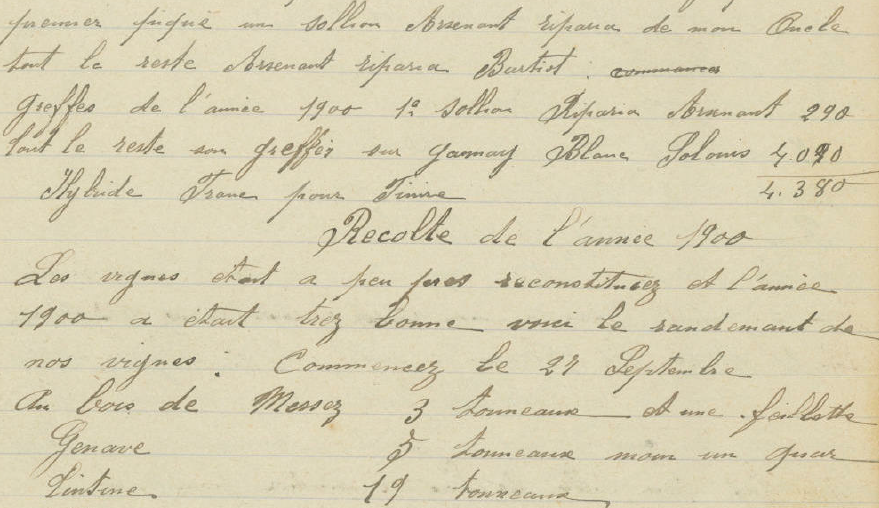 premier piqué un sollion Arsenant riparia de mon Oncle
tout le reste Arsenant riparia Burtist.
Greffes de l'année 1900 1° Sollion Riparia Arsenant 290
tout le reste son greffér sur gamay Blanc Solonis 4.090
Hybride Franc pour Finire 4.380
Recolte de l'année 1900
Les vignes etant a peu pres reconstituez et l'année
1900 a etait trez bonne voici le randemant de
nos vignes : Commencez le 27 Septembre
Au bois de Messez 3 tonneaux et une feillette
Genave 5 tonneaux moin un quar
19 tonneaux